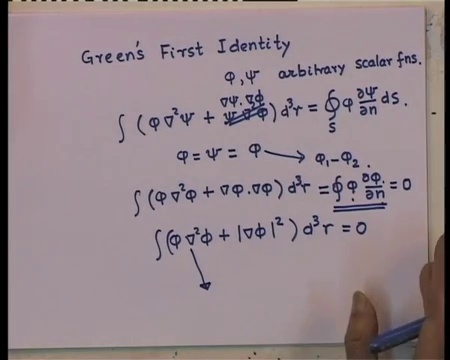 Green's First Identity
φ, ψ arbitrary scalar fns.
∇ψ·∇φ
∫ (φ∇²ψ + ) d³r = ∮_S φ ∂ψ/∂n dS.
φ = ψ = φ → φ₁-φ₂.
∫ (φ∇²φ + ∇φ·∇φ) d³r = ∮ φ ∂φ/∂n = 0
∫ (φ∇²φ + |∇φ|²) d³r = 0